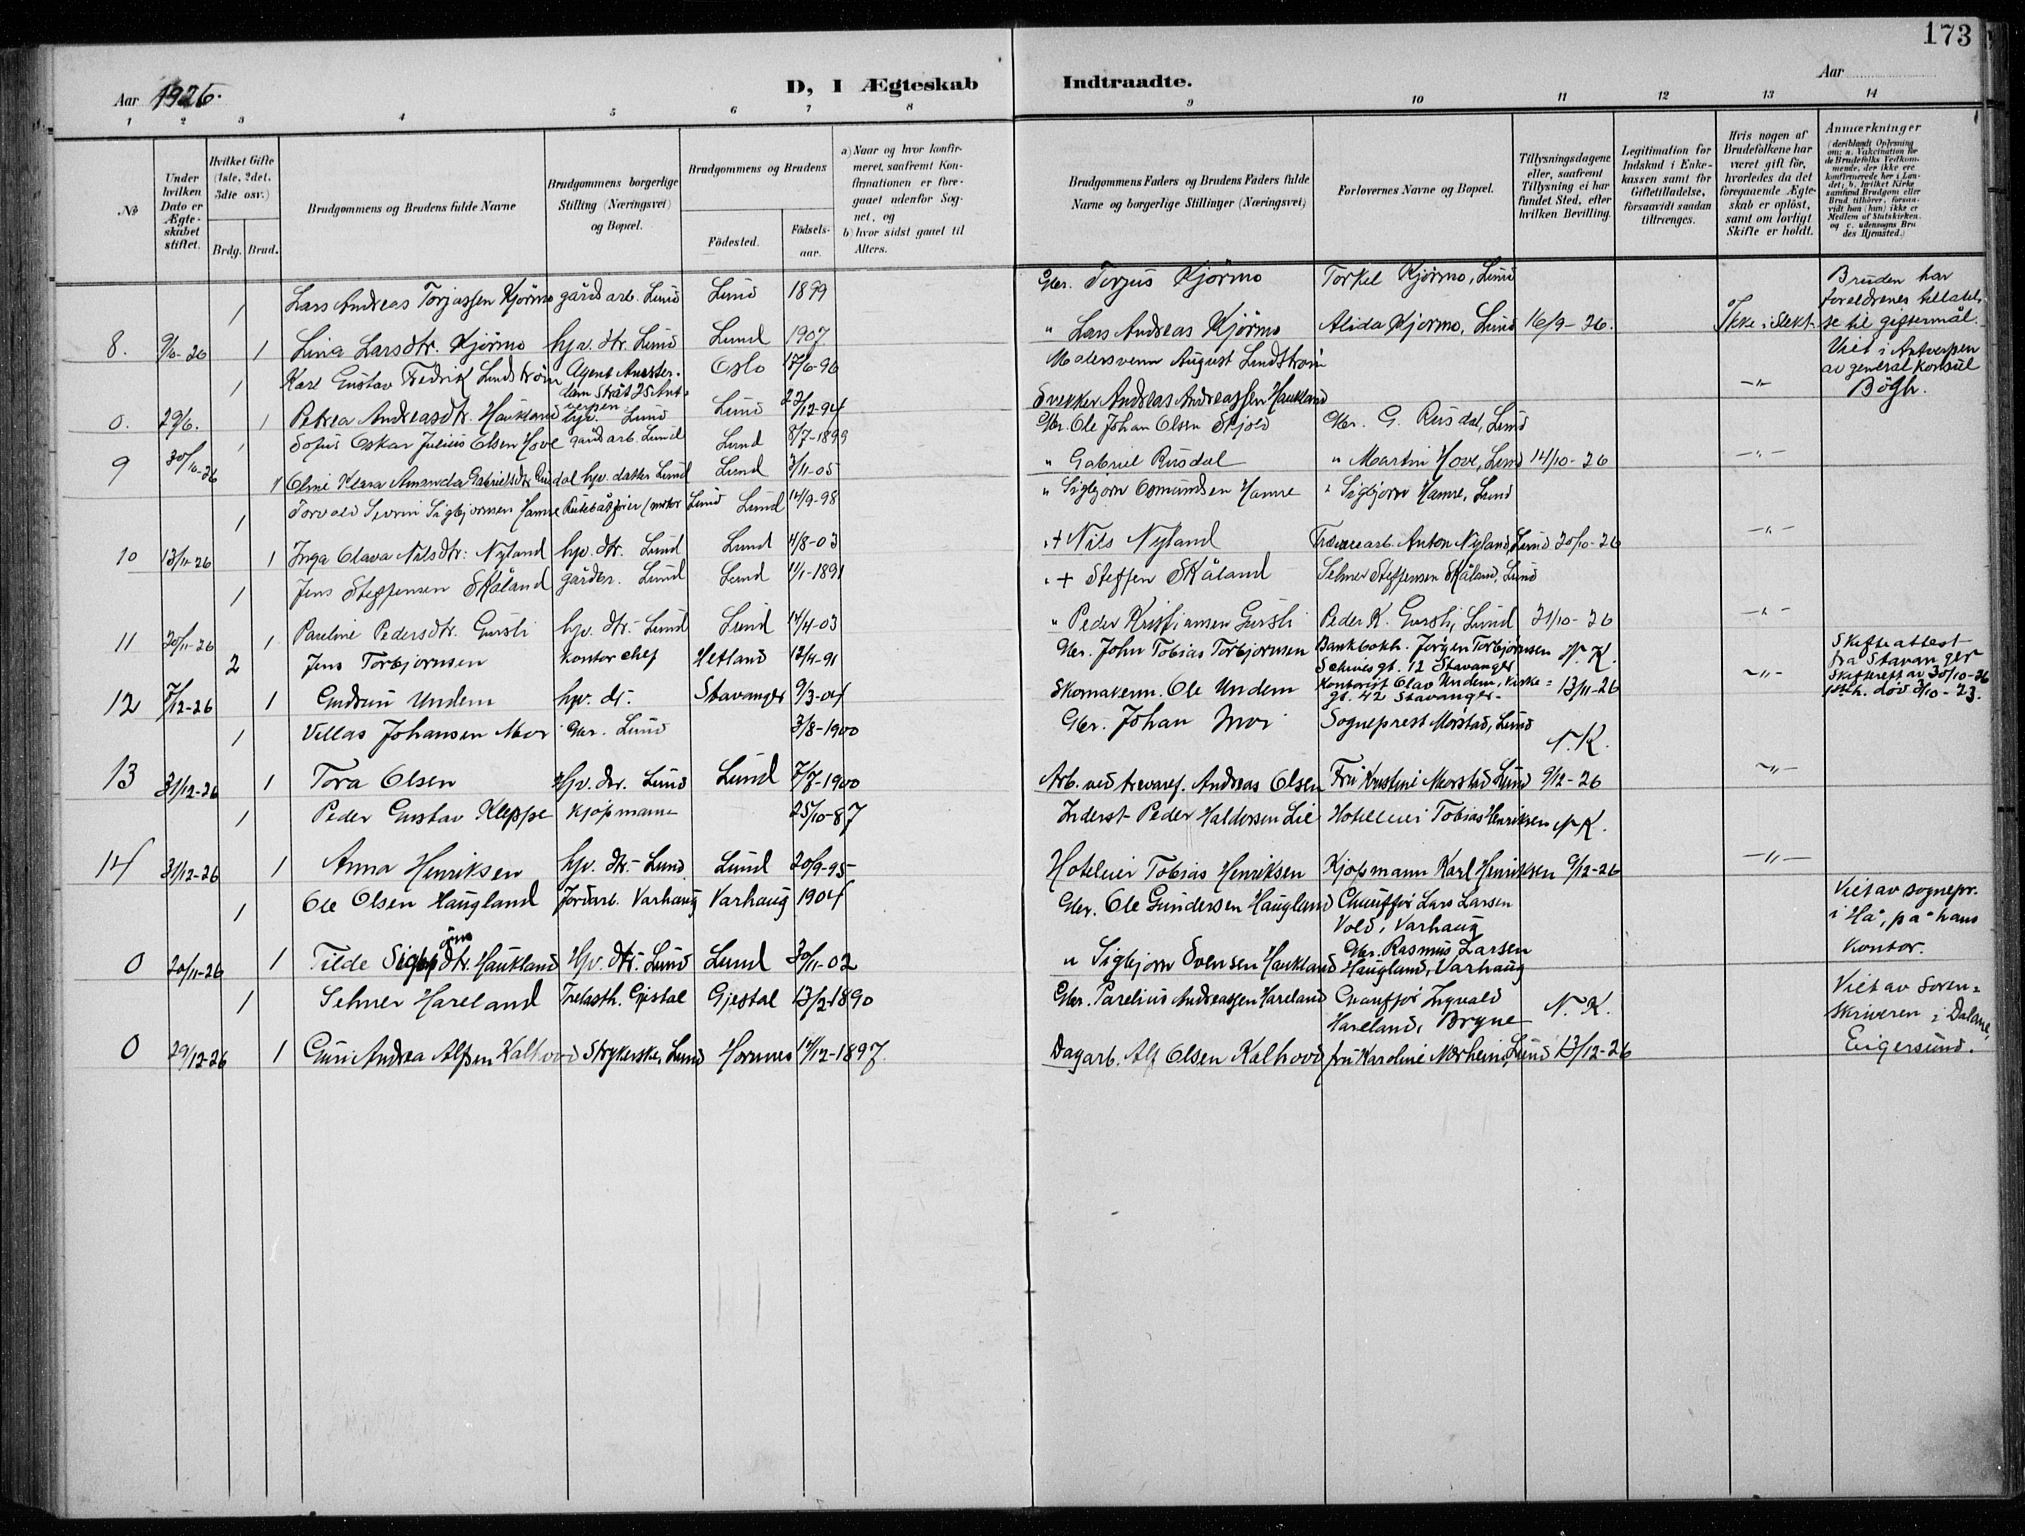 173
Aar 1926.
D, I Ægteskab Indtraadte.
Aar
1 2 3 4 5 6 7 8 9 10 11 12 13 14
No
Under hvilken Dato er Ægteskabet stiftet.
Hvilket Gifte (1ste, 2det, 3die osv.)
Brdg. Brud.
Brudgommens og Brudens fulde Navne
Brudgommens borgerlige Stilling (Næringsvei) og Bopæl.
Brudgommens og Brudens
Födested. Födselsaar.
a) Naar og hvor konfirmeret, saafremt Konfirmationen er foregaaet udenfor Sognet, og
b) hvor sidst gaaet til Alters.
Brudgommens Faders og Brudens Faders fulde Navne og borgerlige Stillinger (Næringsvei)
Forlovernes Navne og Bopæl.
Tillysningsdagene eller, saafremt Tillysning ei har fundet Sted, efter hvilken Bevilling.
Legitimation for Indskud i Enkekassen samt for Giftetilladelse, forsaavidt saadan tiltrænges.
Hvis nogen af Brudefolkene har været gift för, hvorledes da det foregaaende Ægteskab er oplöst, samt om lovligt Skifte er holdt.
Anmærkninger (deriblandt Oplysning om: a. Vakcination for de Brudefolks Vedkommende, der ikke ere konfirmerede her i Landet; b. hvilket Kirkesamfund Brudgom eller Brud tilhörer, forsaavidt han (hun) ikke er Medlem af Statskirken, og c. udensogns Brudes Hjemsted.)
1 Lars Andreas Torjassen Kjörmo gårdarb. Lund Lund 1899 Gbr. Torjus Kjörmo Torkel Kjörmo, Lund
8. 9/10-26 1 Lina Larsdtr. Kjörmo hjv. dtr. Lund Lund 1907 " Lars Andreas Kjörmo Alida Kjörmo, Lund 16/9-26. Ikke i Slekt. Bruden har foreldrenes tillatelse til giftermål.
1 Karl Gustav Fredrik Lundström Agent Amsterdam Strat 75 Antverpen Oslo 17/6-96 Malersvenn August Lundström
0. 29/6. 1 Petrea Andreasdtr. Haukland hjv. Lund Lund 22/12-94 Snekker Andreas Andreassen Haukland -"- Viet i Antverpen av generalkonsul Bögh.
1 Sofus Oskar Julius Olsen Hove gårdsarb. Lund Lund 8/7-1899 Gbr. Ole Johan Olsen Skjold Gbr. G. Rusdal, Lund
9 30/10-26 1 Oline Klara Amanda Gabrielsdtr. Rusdal hjv. datter Lund Lund 3/11-05 " Gabriel Rusdal " Martin Hove, Lund 14/10-26 -"-
1 Torvald Severin Sigbjörnsen Hamre Rutebåtförer (motor Lund Lund 14/9-98 " Sigbjorn Osmundsen Hamre " Sigbjorn Hamre, Lund
10 13/11-26 1 Inga Olava Nilsdtr. Nyland hjv. dtr. Lund Lund 4/8-03 " + Nils Nyland Trævarearb. Anton Nyland, Lund 20/10-26 -"-
1 Jens Steffensen Skåland gårdbr. Lund Lund 11/1-1891 " + Steffen Skåland Selmer Steffensen Skåland, Lund
11 20/11-26 1 Pareline Pedersdtr. Gursli hjv. dtr. Lund Lund 14/4-03 " Peder Kristiansen Gursli Peder K. Gursli, Lund 31/10-26 -"-
2 Jens Torbjornsen Kontorchef Hetland 12/4-91 Gbr. John Tobias Torbjornsen Bankbokh. Jörgen Torbjörnsen Schives gt. 12 Stavanger N. K.
12 7/12-26 1 Gudrun Undem hjv. dt. Stavanger 9/3-04 Skomakerm. Ole Undem Kontorist Olav Undem, gt. 42 Stavanger 13/11-26 -"- Skifteattest fra Stavanger Skifterett av 30/10-26 død 3/10-23.
1 Villas Johansen Moi Gbr. Lund 3/8-1900 Gbr. Johan Moi Sogneprest Mörstad, Lund N. K.
13 31/12-26 1 Tora Olsen Hjv. dtr. Lund Lund 7/7-1900 Arb. ved trevaref. Andreas Olsen Fru Kristine Mörstad Lund 9/12-26 -"-
1 Peder Gustav Kleppe Kjöpmann 25/10-87 Inderst Peder Haldorsen Lie Hotelleier Tobias Henriksen N. K.
14 31/12-26 1 Anna Henriksen hjv. dtr. Lund Lund 20/9-95 Hoteleier Tobias Henriksen Kjöpmann Karl Henriksen 9/12-26 -"-
1 Ole Olsen Haugland Jordarb. Varhaug Varhaug 1904 Gbr. Ole Gundersen Haugland Chauffør Lars Larsen Vold, Varhaug
0 20/11-26 1 Tilde Sigbjörnsdtr. Haukland Hjv. dtr. Lund Lund 30/11-02 " Sigbjorn Svensen Haukland Gbr. Rasmus Larsen Haugland, Varhaug Viet av sognepr. i Hå, på hans kontor.
1 Selmer Hareland Trelasth. Gjestal Gjestal 13/2-1890 Gbr. Parelius Andreassen Hareland Chauffør Ingvald Hareland, Bryne N. K.
0 29/12-26 1 Guri Andrea Alfsen Kalhovd Strykerske, Lund Hornnes 14/12-1897. Dagarb. Alf Olsen Kalhovd fru Karoline Nörheim, Lund 13/12-26 Viet av Sorenskriveren i Dalane, Eigersund.